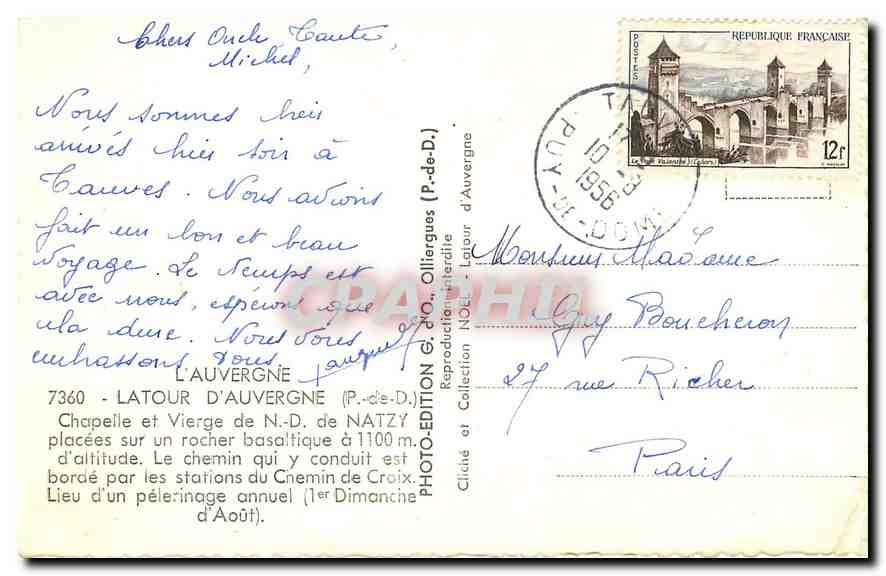 Chers Oncle, Tante,
Michel,
Nous sommes bien
arrivés hier soir à
Tauves. Nous avions
fait un bon et beau
voyage. Le temps est
avec nous, espérons que
cela dure. Nous vous
embrassons tous.
L'AUVERGNE
7360 - LATOUR D'AUVERGNE (P.-de-D.)
Chapelle et Vierge de N.-D. de NATZY
placées sur un rocher basaltique à 1100 m.
d'altitude. Le chemin qui y conduit est
bordé par les stations du Chemin de Croix.
Lieu d'un pélerinage annuel (1er Dimanche
d'Août).
PHOTO-EDITION G. d'O., Olliergues (P.-de-D.)
Reproduction interdite
Cliché et Collection NOËL - Latour d'Auvergne
CPAPHIL
POSTES
REPUBLIQUE FRANÇAISE
Le Pont Valentré (Cahors)
12f
17
10 - 8
1956
PUY-DE-DOME
Monsieur Madame
Guy Boucheron
27 rue Richer
Paris